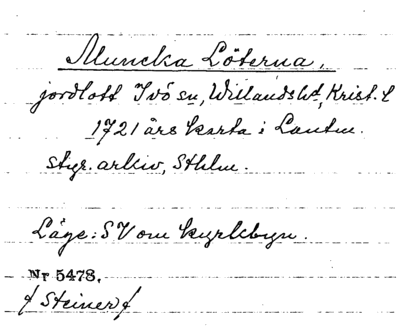 Muncka Löterna,
jordlott Ivö sn, Willands hd, Krist. l
1721 års karta i Lantm.
styr. arkiv, Sthlm.
Läge: SV om kyrkbyn.
Nr 5478.
/Steiner/